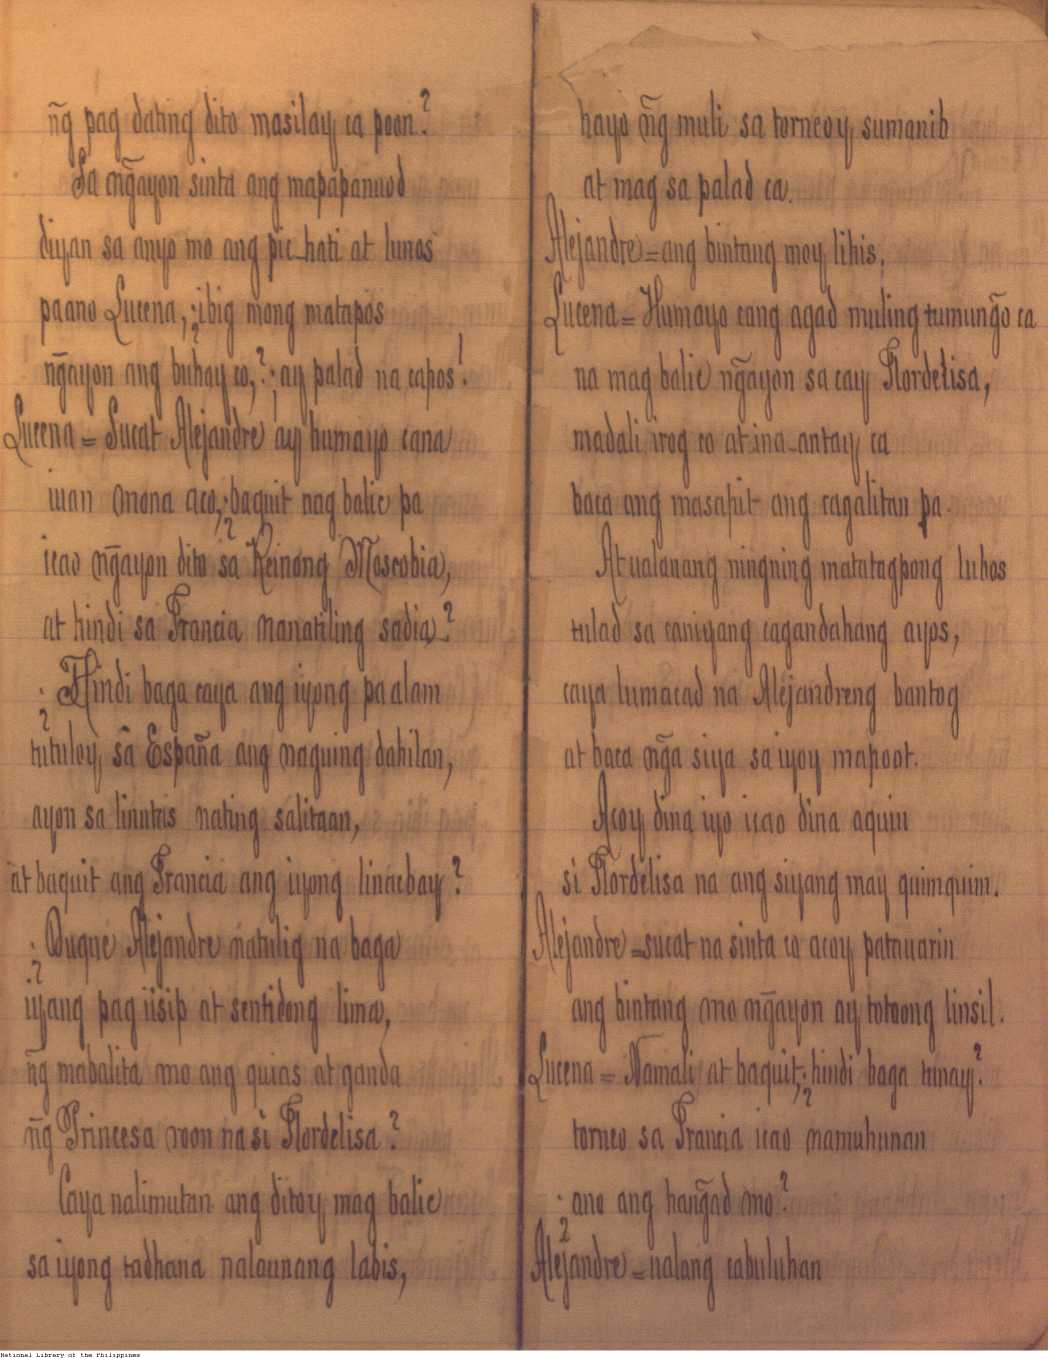 ñg pag dating dito masilay ca poon?
Sa ñgayon sinta ang mapapanuod
diyan sa anyo mo ang pic-hati at lunos
paano Lucena, ¿ibig mong matapos
ñgayon ang buhay co,? ¡ay palad na capos!
Lucena = Sucat Alejandre ay humayo cana
iuan mona aco, ¿baquit nag balic pa
icao ñgayon dito sa Reinong Moscobia,
at hindi sa Francia nanatiling sadia?
¿Hindi baga caya ang iyong pa alam
tutuloy, sa España ang naguing dahilan,
ayon sa linntris nating salitaan,
at baquit ang Francia ang iyong linacbay?
¿Duque Alejandre natulig na baga
iyang pag iisip at sentidong lima,
ñg mabalita mo ang quias at ganda
ñg Princesa roon na si Flordelisa?
Caya nalimutan ang ditoy mag balic
sa iyong tadhana nalaunang labis,
hayo ñg muli sa torneoy sumanib
at mag sa palad ca.
Alejandre = ang bintang moy lihis.
Lucena = Humayo cang agad muling tumuñgo ca
na mag balic ñgayon sa cay Flordelisa,
madali irog co at ina-antay ca
baca ang masapit ang cagalitan pa.
At ualanang ningning matatagpong lubos
tulad sa caniyang cagandahang ayos,
caya lumacad na Alejandreng bantog
at baca ñga siya sa iyoy mapoot.
Acoy dina iyo icao dina aquin
si Flordelisa na ang siyang may quimquim.
Alejandre = sucat na sinta co acoy patauarin
ang bintang mo ñgayon ay totoong linsil.
Lucena = Namali at baquit, ¿hindi baga tunay?
torneo sa Francia icao namuhunan
¿ano ang hañgad mo?
Alejandre = ualang cabuluhan